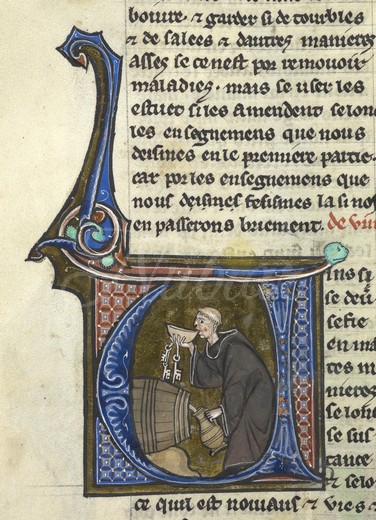 boiure. ⁊ garder si de tourbles
⁊ de salees ⁊ dautres manieres
asses se ce nest por remouoir
maladies. mais se user les
estuet si les amendent selonc
les ensegnemens que nous
desimes en le premiere partie.
car por les ensegnemens que
nous desimes
en passerons briement. de vin
ins
se deu
selonc
se sus
tance
⁊ selo
ce quil est nouiaus ⁊ vies ⁊